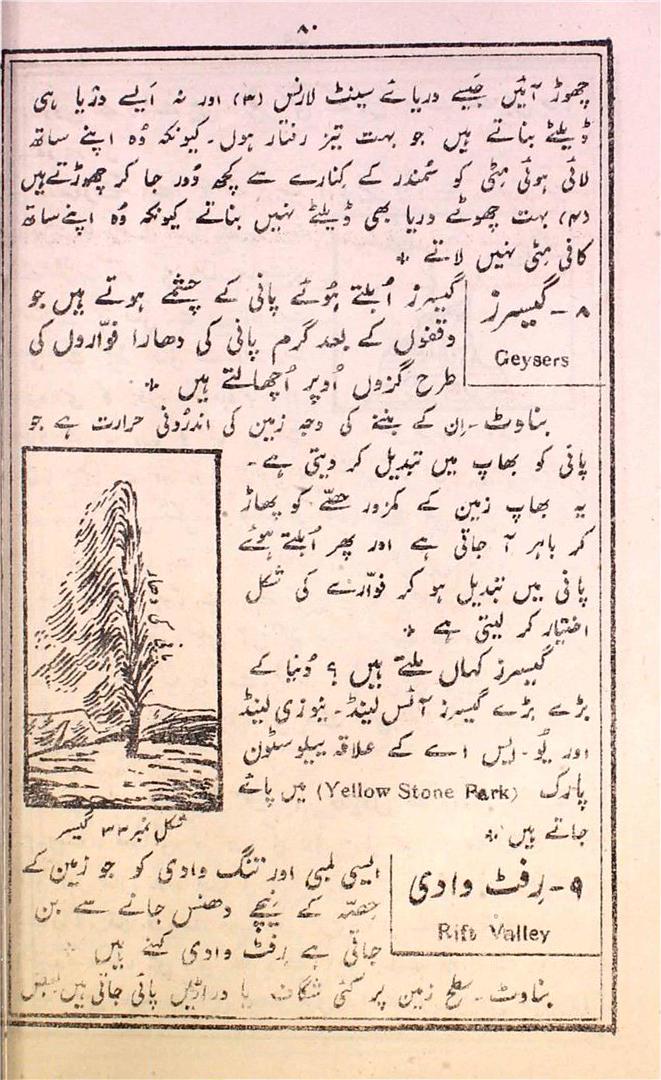 ۸۰
چھوڑ آئیں جیسے دریائے سینٹ لارنس (۳) اور نہ ایسے دریا ہی
ڈیلٹے بناتے ہیں جو بہت تیز رفتار ہوں۔ کیونکہ وُہ اپنے ساتھ
لائی ہوئی مٹی کو سمُندر کے کِنارے سے کچھ دُور جا کر چھوڑتے ہیں
(۴) بہت چھوٹے دریا بھی ڈیلٹے نہیں بناتے کیونکہ وُہ اپنے ساتھ
کافی مِٹی نہیں لاتے ؞
۸۔ گیسرز
Geysers
گیسرز اُبلتے ہُوئے پانی کے چشمے ہوتے ہیں جو
وقفوں کے بعد گرم پانی کی دھارا فوّاروں کی
طرح گزوں اُوپر اُچھالتے ہیں ؞
بناوٹ۔ اِن کے بننے کی وجہ زمین کی اندرُونی حرارت ہے جو
پانی کو بھاپ میں تبدیل کر دیتی ہے۔
یہ بھاپ زمین کے کمزور حِصّے کو پھاڑ
کر باہر آ جاتی ہے اور پھر اُبلتے ہوئے
پانی میں تبدیل ہو کر فوّارے کی شکل
اختیار کر لیتی ہے ؞
گیسرز کہاں ملتے ہیں ؟ دُنیا کے
بڑے بڑے گیسرز آئس لینڈ۔ نیوزی لینڈ
اور یُو۔ ایس اے کے علاقہ ییلوسٹون
پارک (Yellow Stone Park) میں پائے
جاتے ہیں ؞
پانی کی دھار
شکل نمبر ۳۳ گیسر
۹۔ رِفٹ وادی
Rift Valley
ایسی لمبی اور تنگ وادی کو جو زمین کے
حِصّہ کے نیچے دھنس جانے سے بن
جاتی ہے رِفٹ وادی کہتے ہیں ؞
بناوٹ۔ سطح زمین پر کئی شگاف یا دراڑیں پائی جاتی ہیں بعض